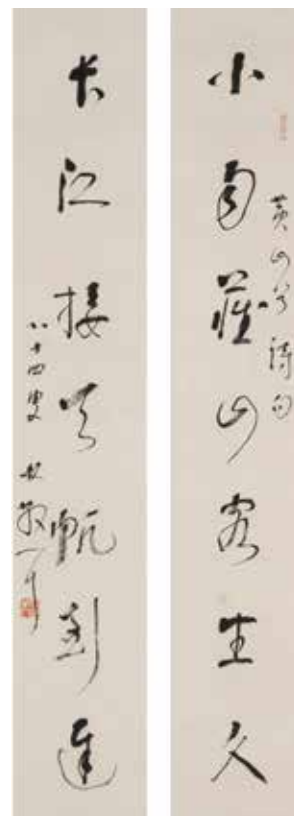 小雨藏山客坐久
黄山谷詩句
長江接天帆到遲
八十四叟 林散耳